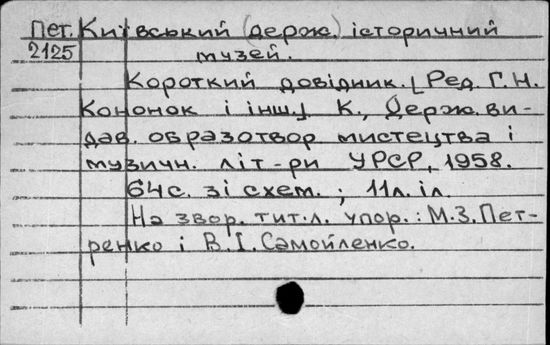 Пет. Київський (держ.) історичний
2125 музей.
Короткий довідник. [Ред. Г.Н.
Кононок і інш.] К., Держ. ви-
дав. образотвор мистецтва і
музичн. літ-ри УРСР, 1958.
64с. зі схем. ; 11л. іл
На звор. тит.л. упор.: М.З. Пет-
ренко і В.І. Самойленко.